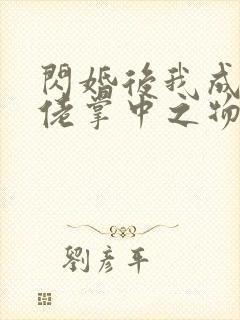 閃婚後我成
佬掌中之物
劉彥平